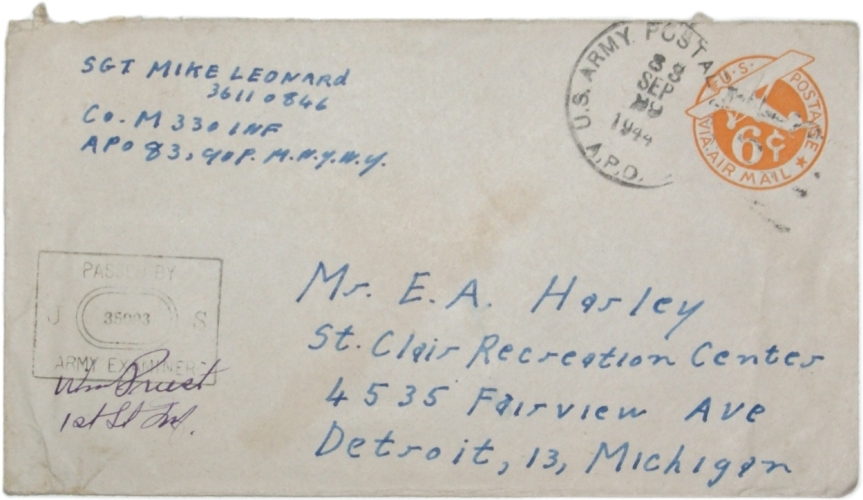 SGT MIKE LEONARD
36110846
Co. M 330 INF
APO 83, 90 P.M.N.Y.N.Y.
U.S. ARMY. POSTAL
SEP
1944
A.P.O.
U.S. POSTAGE
6¢
VIA AIR MAIL
PASSED BY
U S
ARMY EXAMINER
1st Lt Inf.
Mr. E. A. Harley
St. Clair Recreation Center
4535 Fairview Ave
Detroit, 13, Michigan